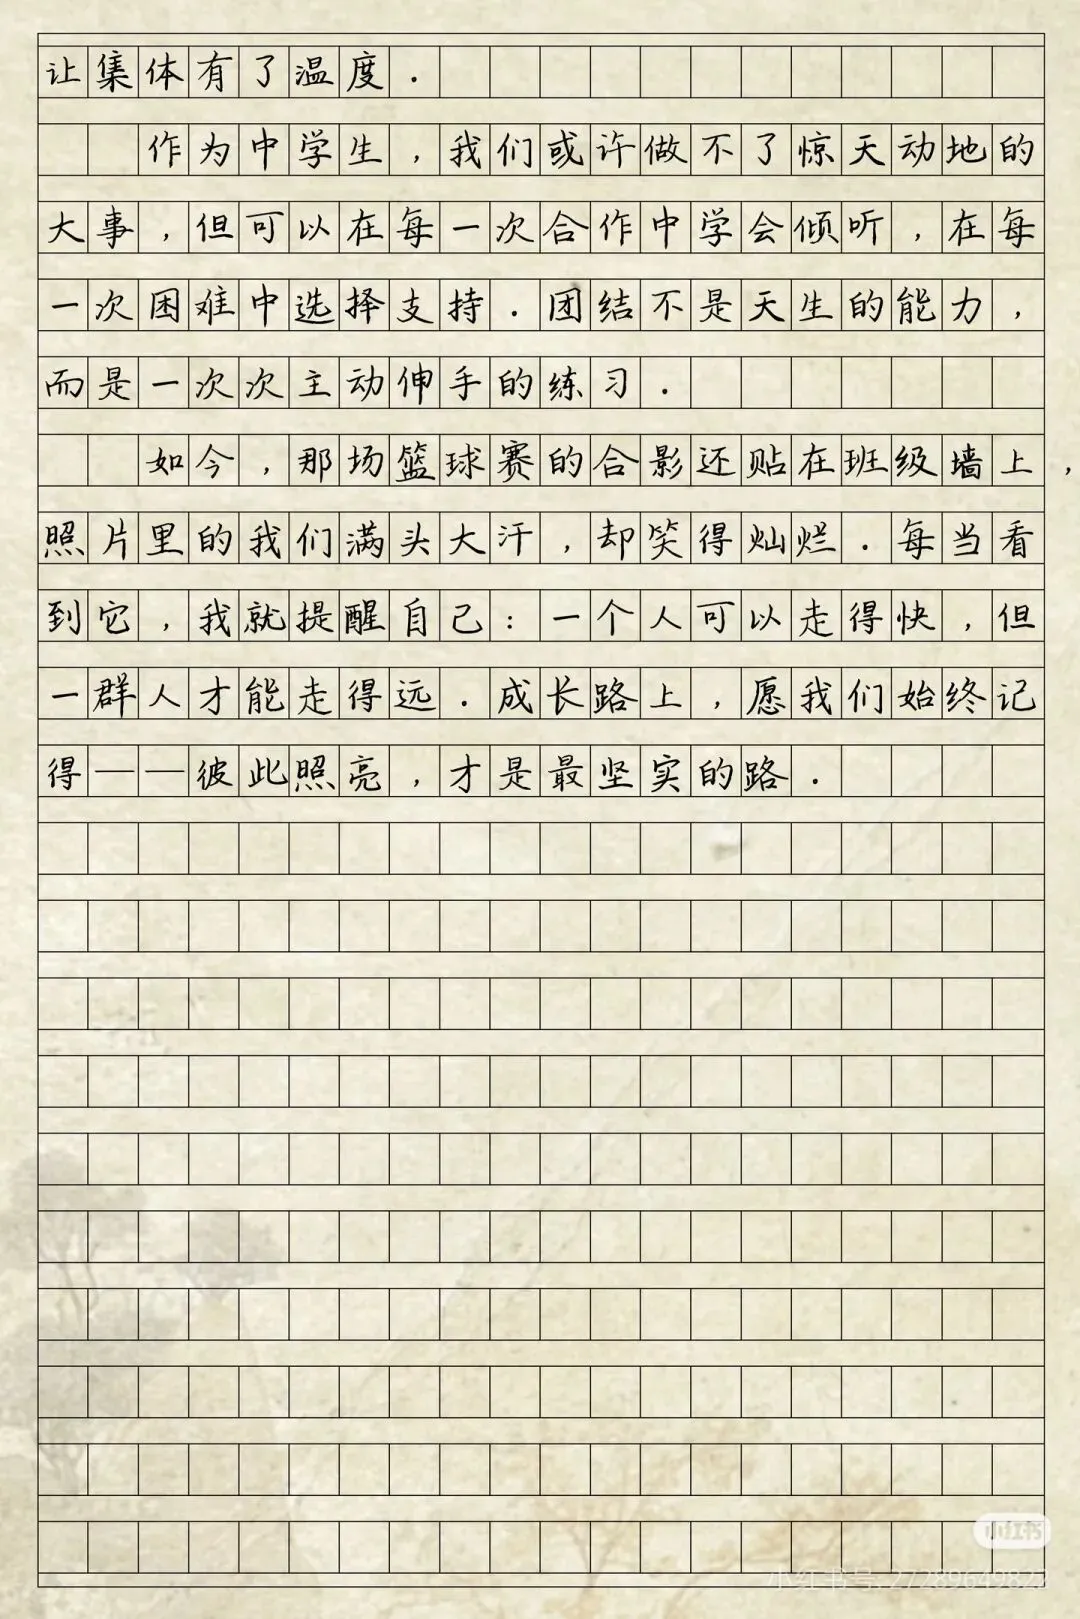 让集体有了温度.
作为中学生,我们或许做不了惊天动地的
大事,但可以在每一次合作中学会倾听,在每
一次困难中选择支持.团结不是天生的能力,
而是一次次主动伸手的练习.
如今,那场篮球赛的合影还贴在班级墙上,
照片里的我们满头大汗,却笑得灿烂.每当看
到它,我就提醒自己:一个人可以走得快,但
一群人才能走得远.成长路上,愿我们始终记
得——彼此照亮,才是最坚实的路.
小红书
小红书号:27289649822